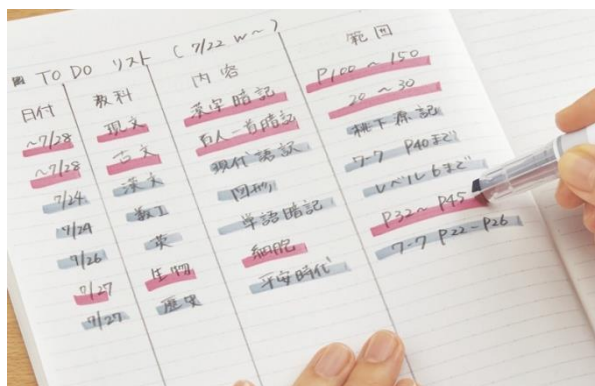 TO DO リスト (7/22 w~)
日付 教科 内容 範囲
~7/28 現文 漢字暗記 P100~150
~7/28 古文 百人一首暗記 20~30
7/24 漢文 現代語訳
7/24 数I 図形 ワーク P40まで
7/26 英 単語暗記 レベル6まで
7/27 生物 細胞 P32~P45
7/27 歴史 平安時代 ワーク P22~P26